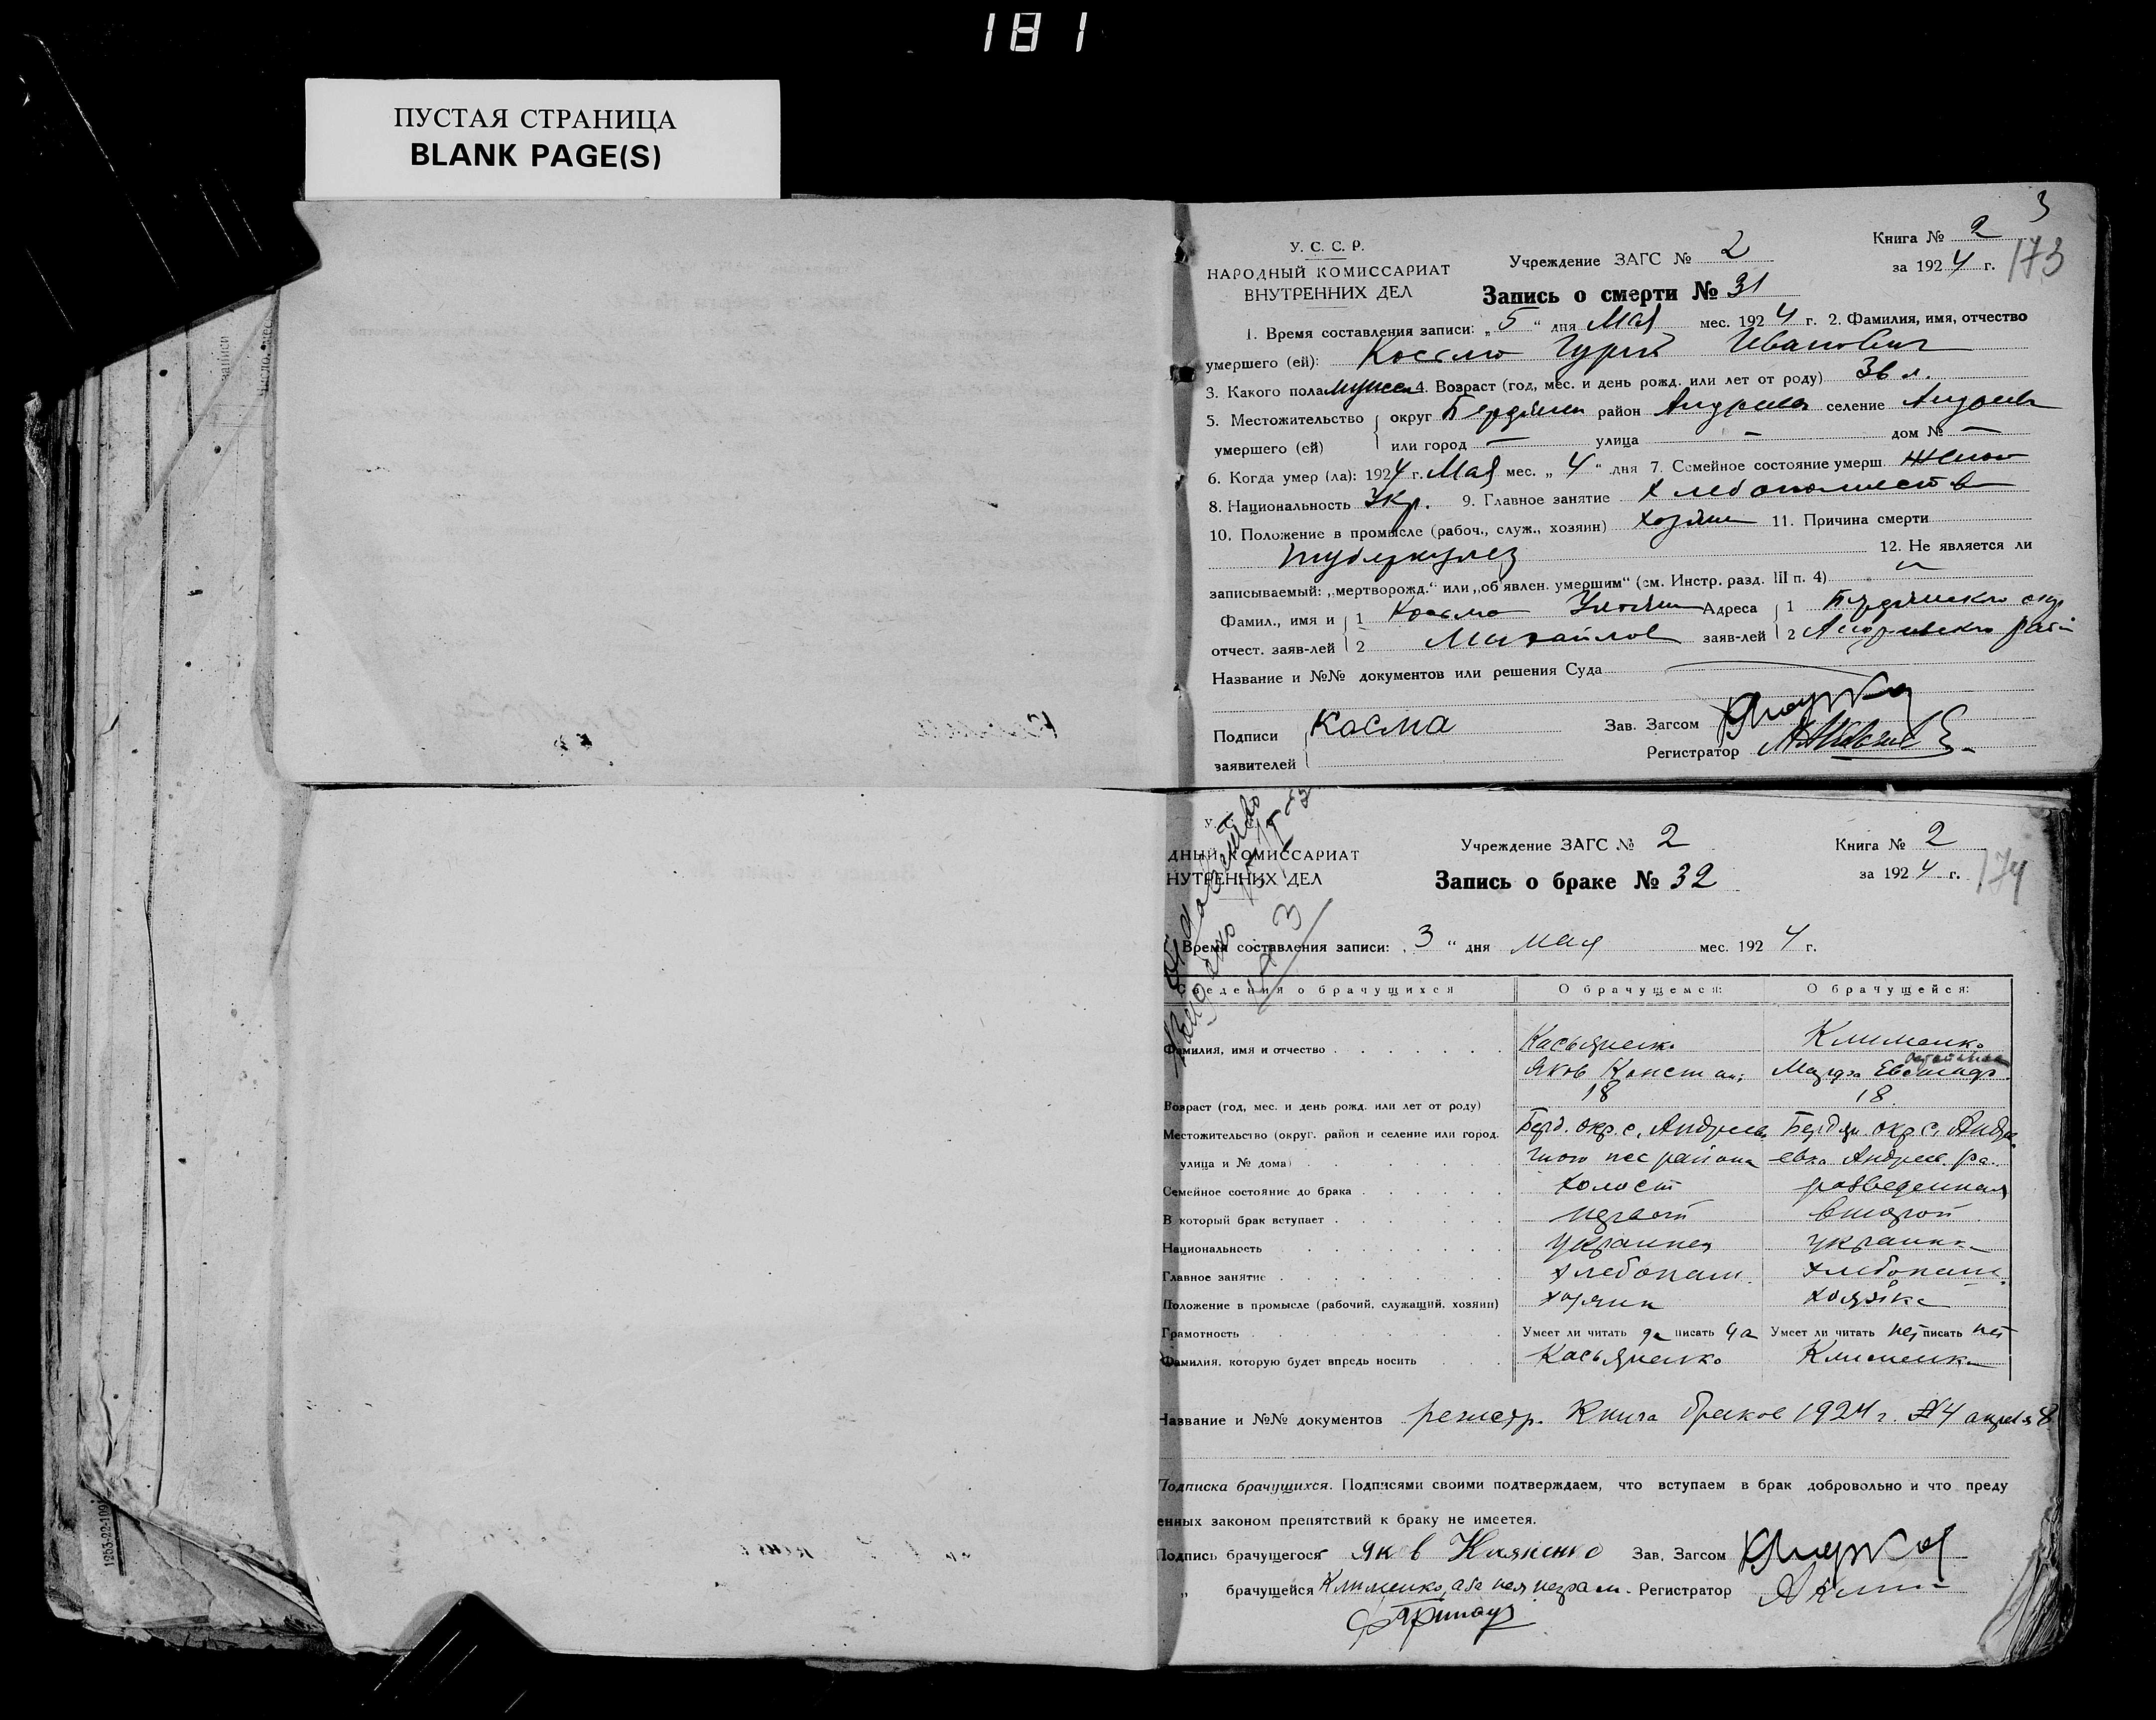 181
ПУСТАЯ СТРАНИЦА
BLANK PAGE(S)
3
У. С. С. Р.
НАРОДНЫЙ КОМИССАРИАТ
ВНУТРЕННИХ ДЕЛ
Учреждение ЗАГС № 2
Книга № 2
за 1924 г. 173
Запись о смерти № 31
1. Время составления записи: „5“ дня Мая мес. 1924 г. 2. Фамилия, имя, отчество
умершего (ей): Косьмо Гурий Иванович
3. Какого пола 4. Возраст (год, мес. и день рожд. или лет от роду) 36 л.
5. Местожительство округ Бердянск район Андреев селение Андреев
умершего (ей) или город — улица — дом № —
6. Когда умер (ла): 1924 г. Мая мес. „4“ дня 7. Семейное состояние умерш. женат
8. Национальность Укр. 9. Главное занятие хлебопашество
10. Положение в промысле (рабоч., служ., хозяин) хозяин 11. Причина смерти
туберкулез 12. Не является ли
записываемый: „мертворожд.“ или „об'явлен. умершим“ (см. Инстр. разд. III п. 4)
Фамил., имя и 1 Косьма Адреса 1 Бердянского окр
отчест. заяв-лей 2 Михайлов заяв-лей 2 Андреевского рай
Название и №№ документов или решения Суда
Подписи Косма Зав. Загсом
заявителей Регистратор
У. С.
ДНЫЙ КОМИССАРИАТ
НУТРЕННИХ ДЕЛ
Учреждение ЗАГС № 2
Книга № 2
за 1924 г. 174
Запись о браке № 32
Время составления записи: 3 “ дня мая мес. 1924 г.
Сведения о брачущихся О брачущемся: О брачущейся:
Фамилия, имя и отчество Касьяненко Клименко
Яков Констан. Марфа
Возраст (год, мес. и день рожд. или лет от роду) 18 18.
Местожительство (округ. район и селение или город, Берд. окр. с. Андреев Бердян окр с. Андре
улица и № дома) района евка Андреев. ра.
Семейное состояние до брака холост разведенная
В который брак вступает первый второй
Национальность украинец украинка
Главное занятие хлебопаш. хлебопаш.
Положение в промысле (рабочий, служащий, хозяин) хозяин хозяйка
Грамотность Умеет ли читать да писать да Умеет ли читать нет писать нет
Фамилия, которую будет впредь носить Касьяненко Клименко
Название и №№ документов регистр. Книга браков 1924 г. 4 апреля 8
Подписка брачущихся. Подписями своими подтверждаем, что вступаем в брак добровольно и что преду
енных законом препятствий к браку не имеется.
Подпись брачущегося Зав. Загсом
„ брачущейся Клименко, а за нея неграм. Регистратор
1253-22-109